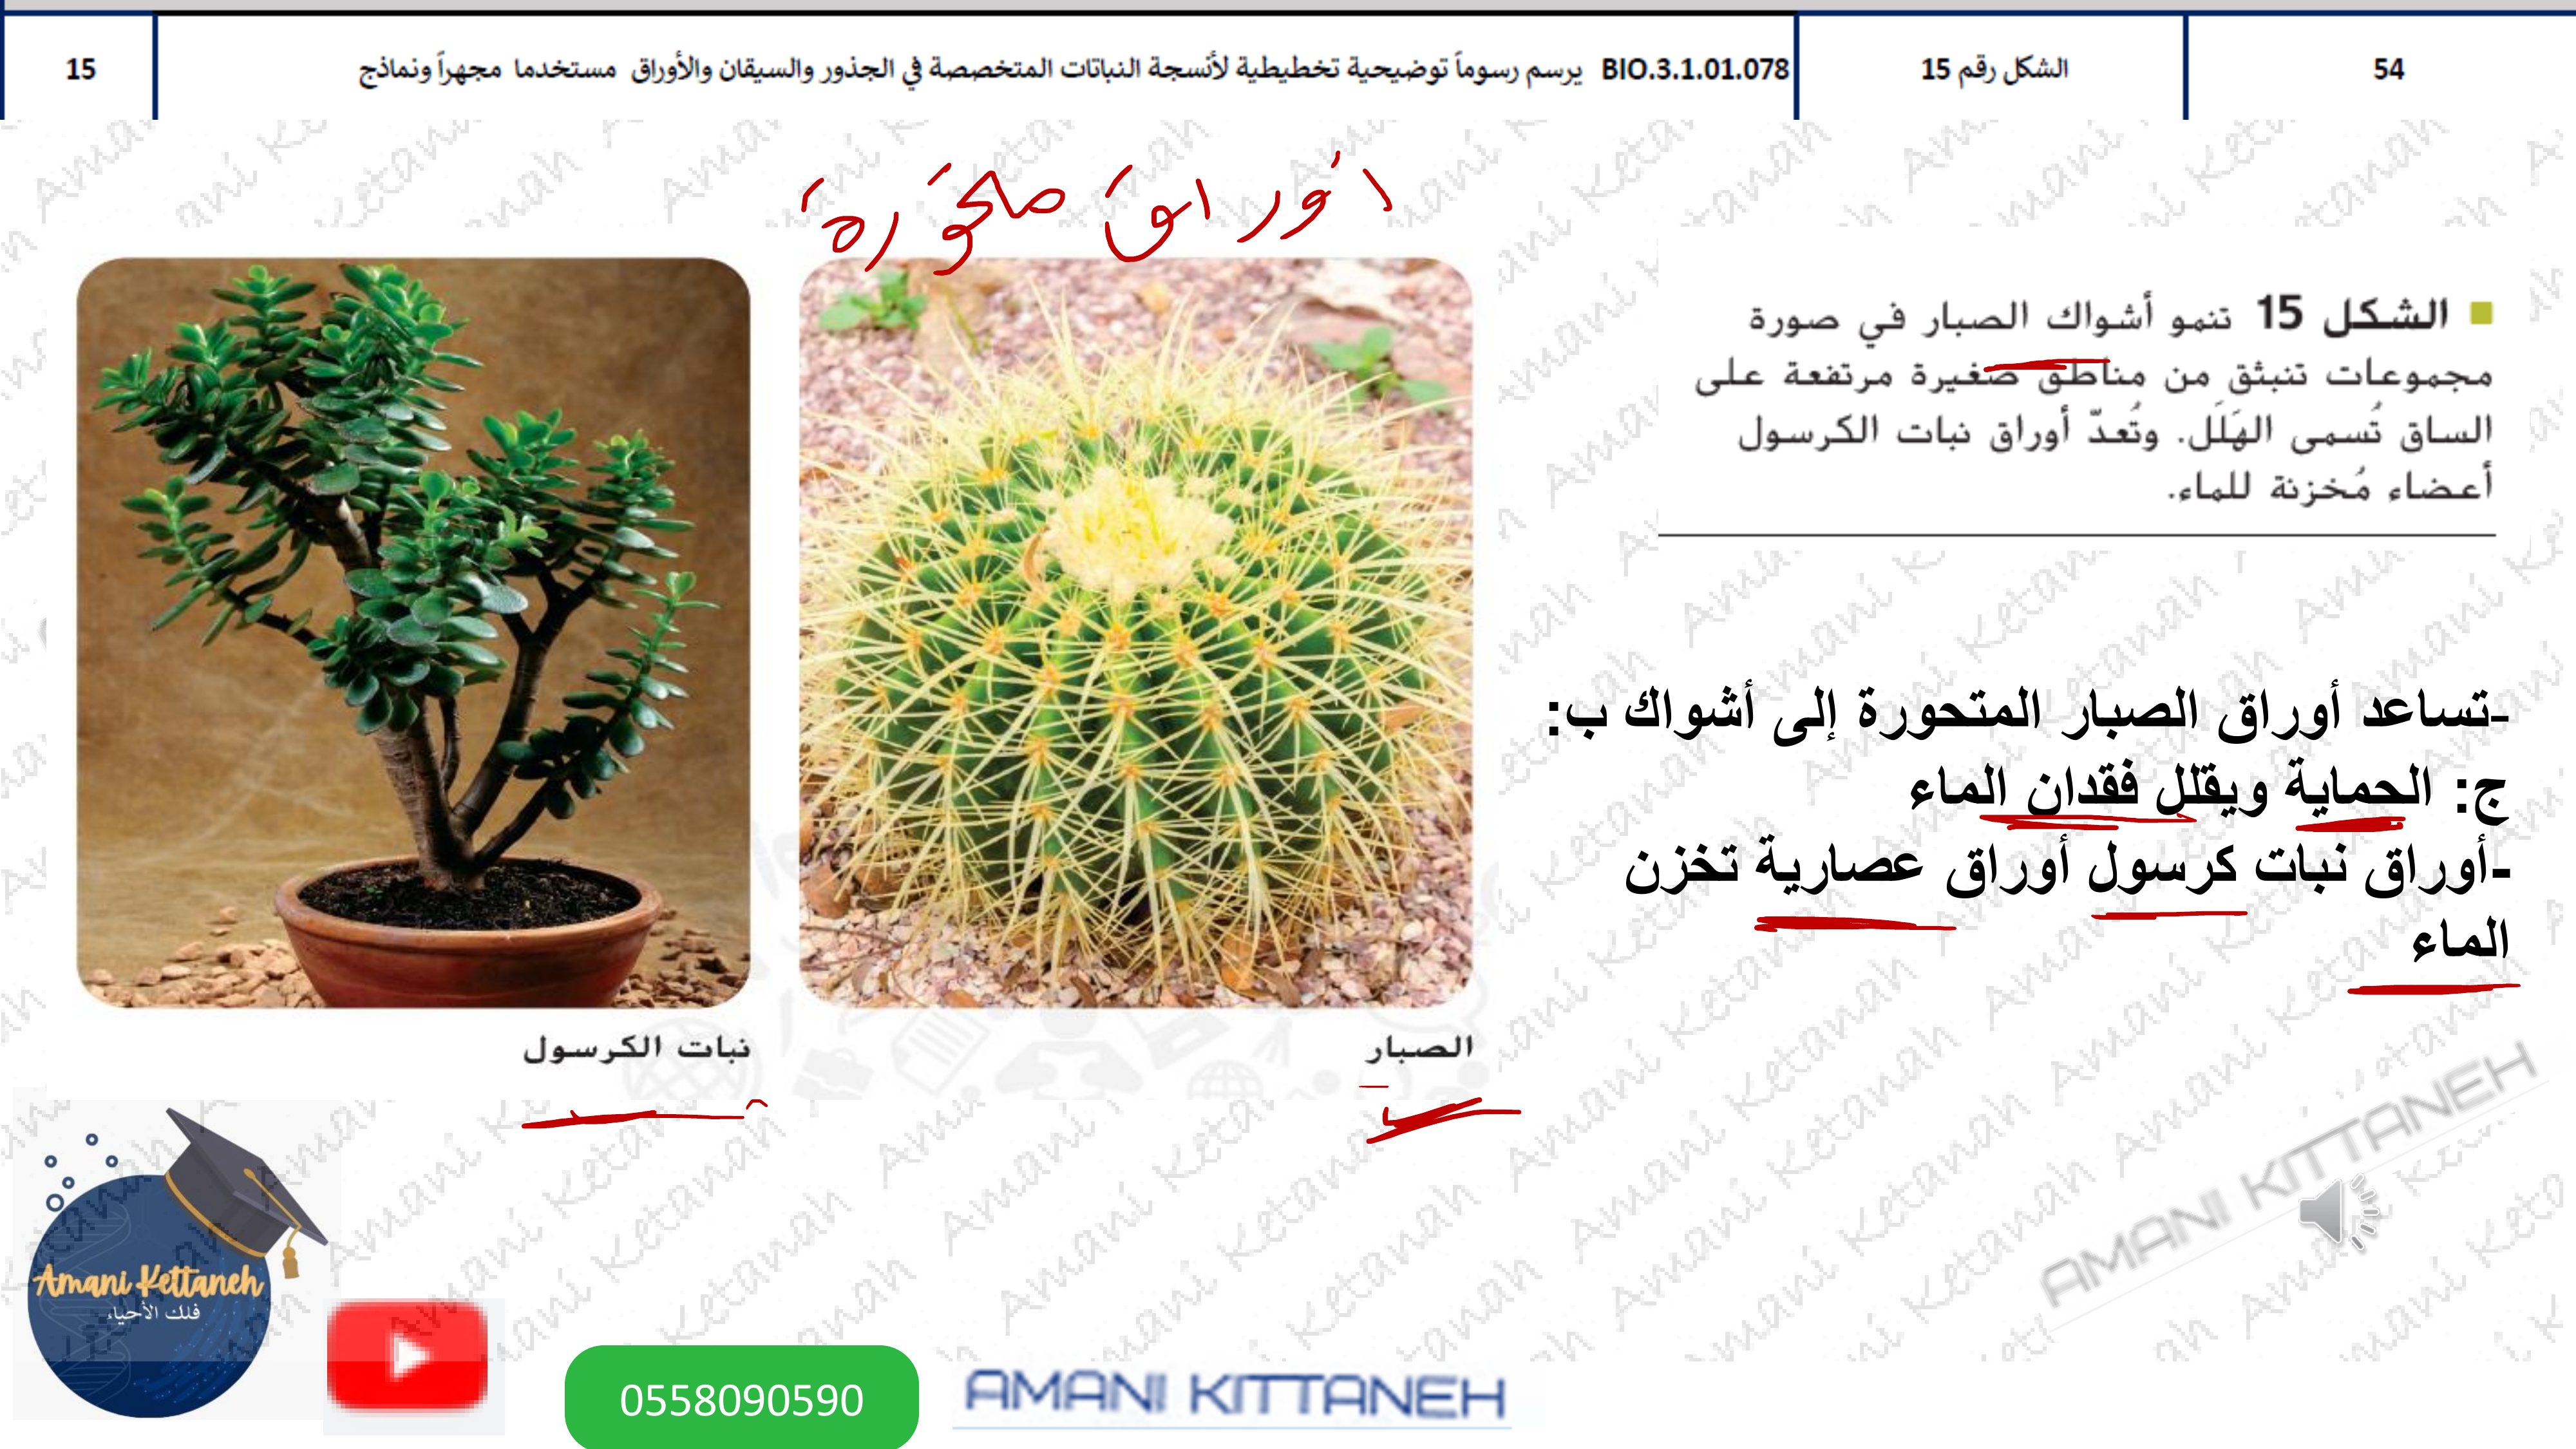 54
الشكل رقم 15
BIO.3.1.01.078 يرسم رسوماً توضيحية تخطيطية لأنسجة النباتات المتخصصة في الجذور والسيقان والأوراق مستخدما مجهراً ونماذج
15
أوراق متحورة
الشكل 15 تنمو أشواك الصبار في صورة
مجموعات تنبثق من مناطق صغيرة مرتفعة على
الساق تُسمى الهَلَل. وتُعدّ أوراق نبات الكرسول
أعضاء مُخزنة للماء.
-تساعد أوراق الصبار المتحورة إلى أشواك ب:
ج: الحماية ويقلل فقدان الماء
-أوراق نبات كرسول أوراق عصارية تخزن
الماء
الصبار
نبات الكرسول
Amani Kettaneh
فلك الأحياء
0558090590
AMANI KITTANEH
AMANI KITTANEH